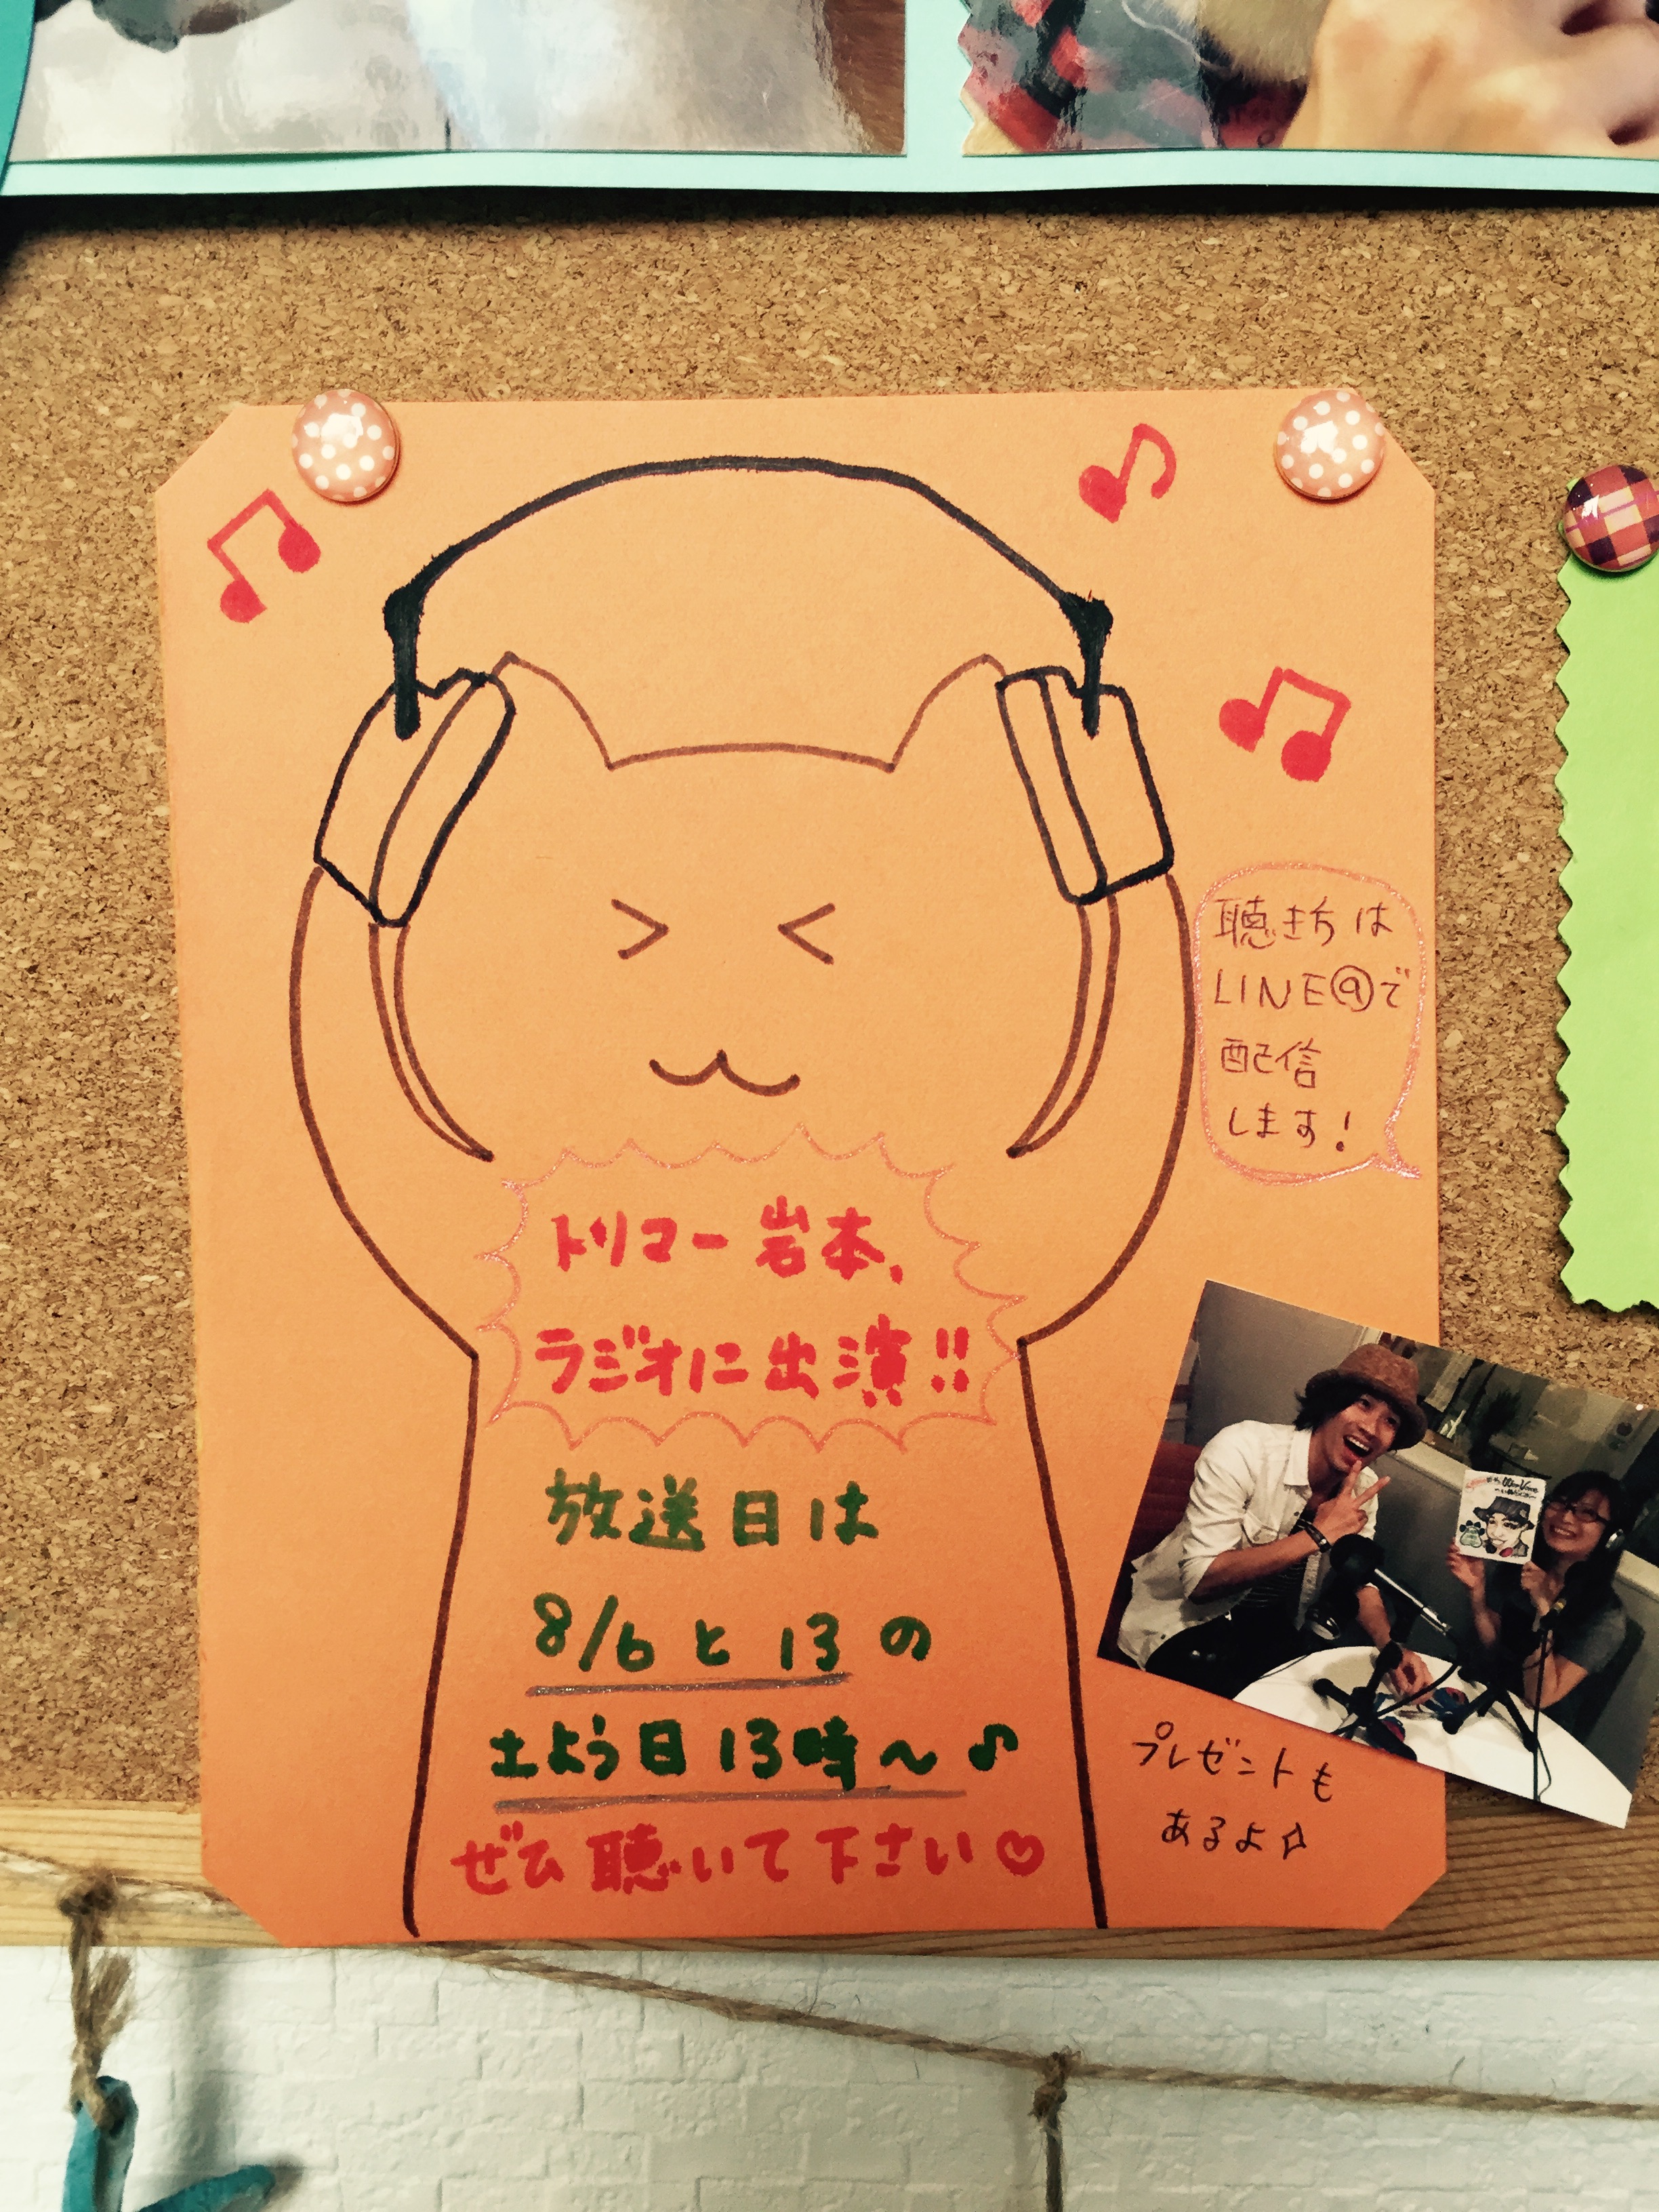 聴き方は
LINE@で
配信
します!
トリマー岩本、
ラジオに出演!!
放送日は
8/6と13の
土よう日13時〜♪
ぜひ聴いて下さい♡
プレゼントも
あるよ☆